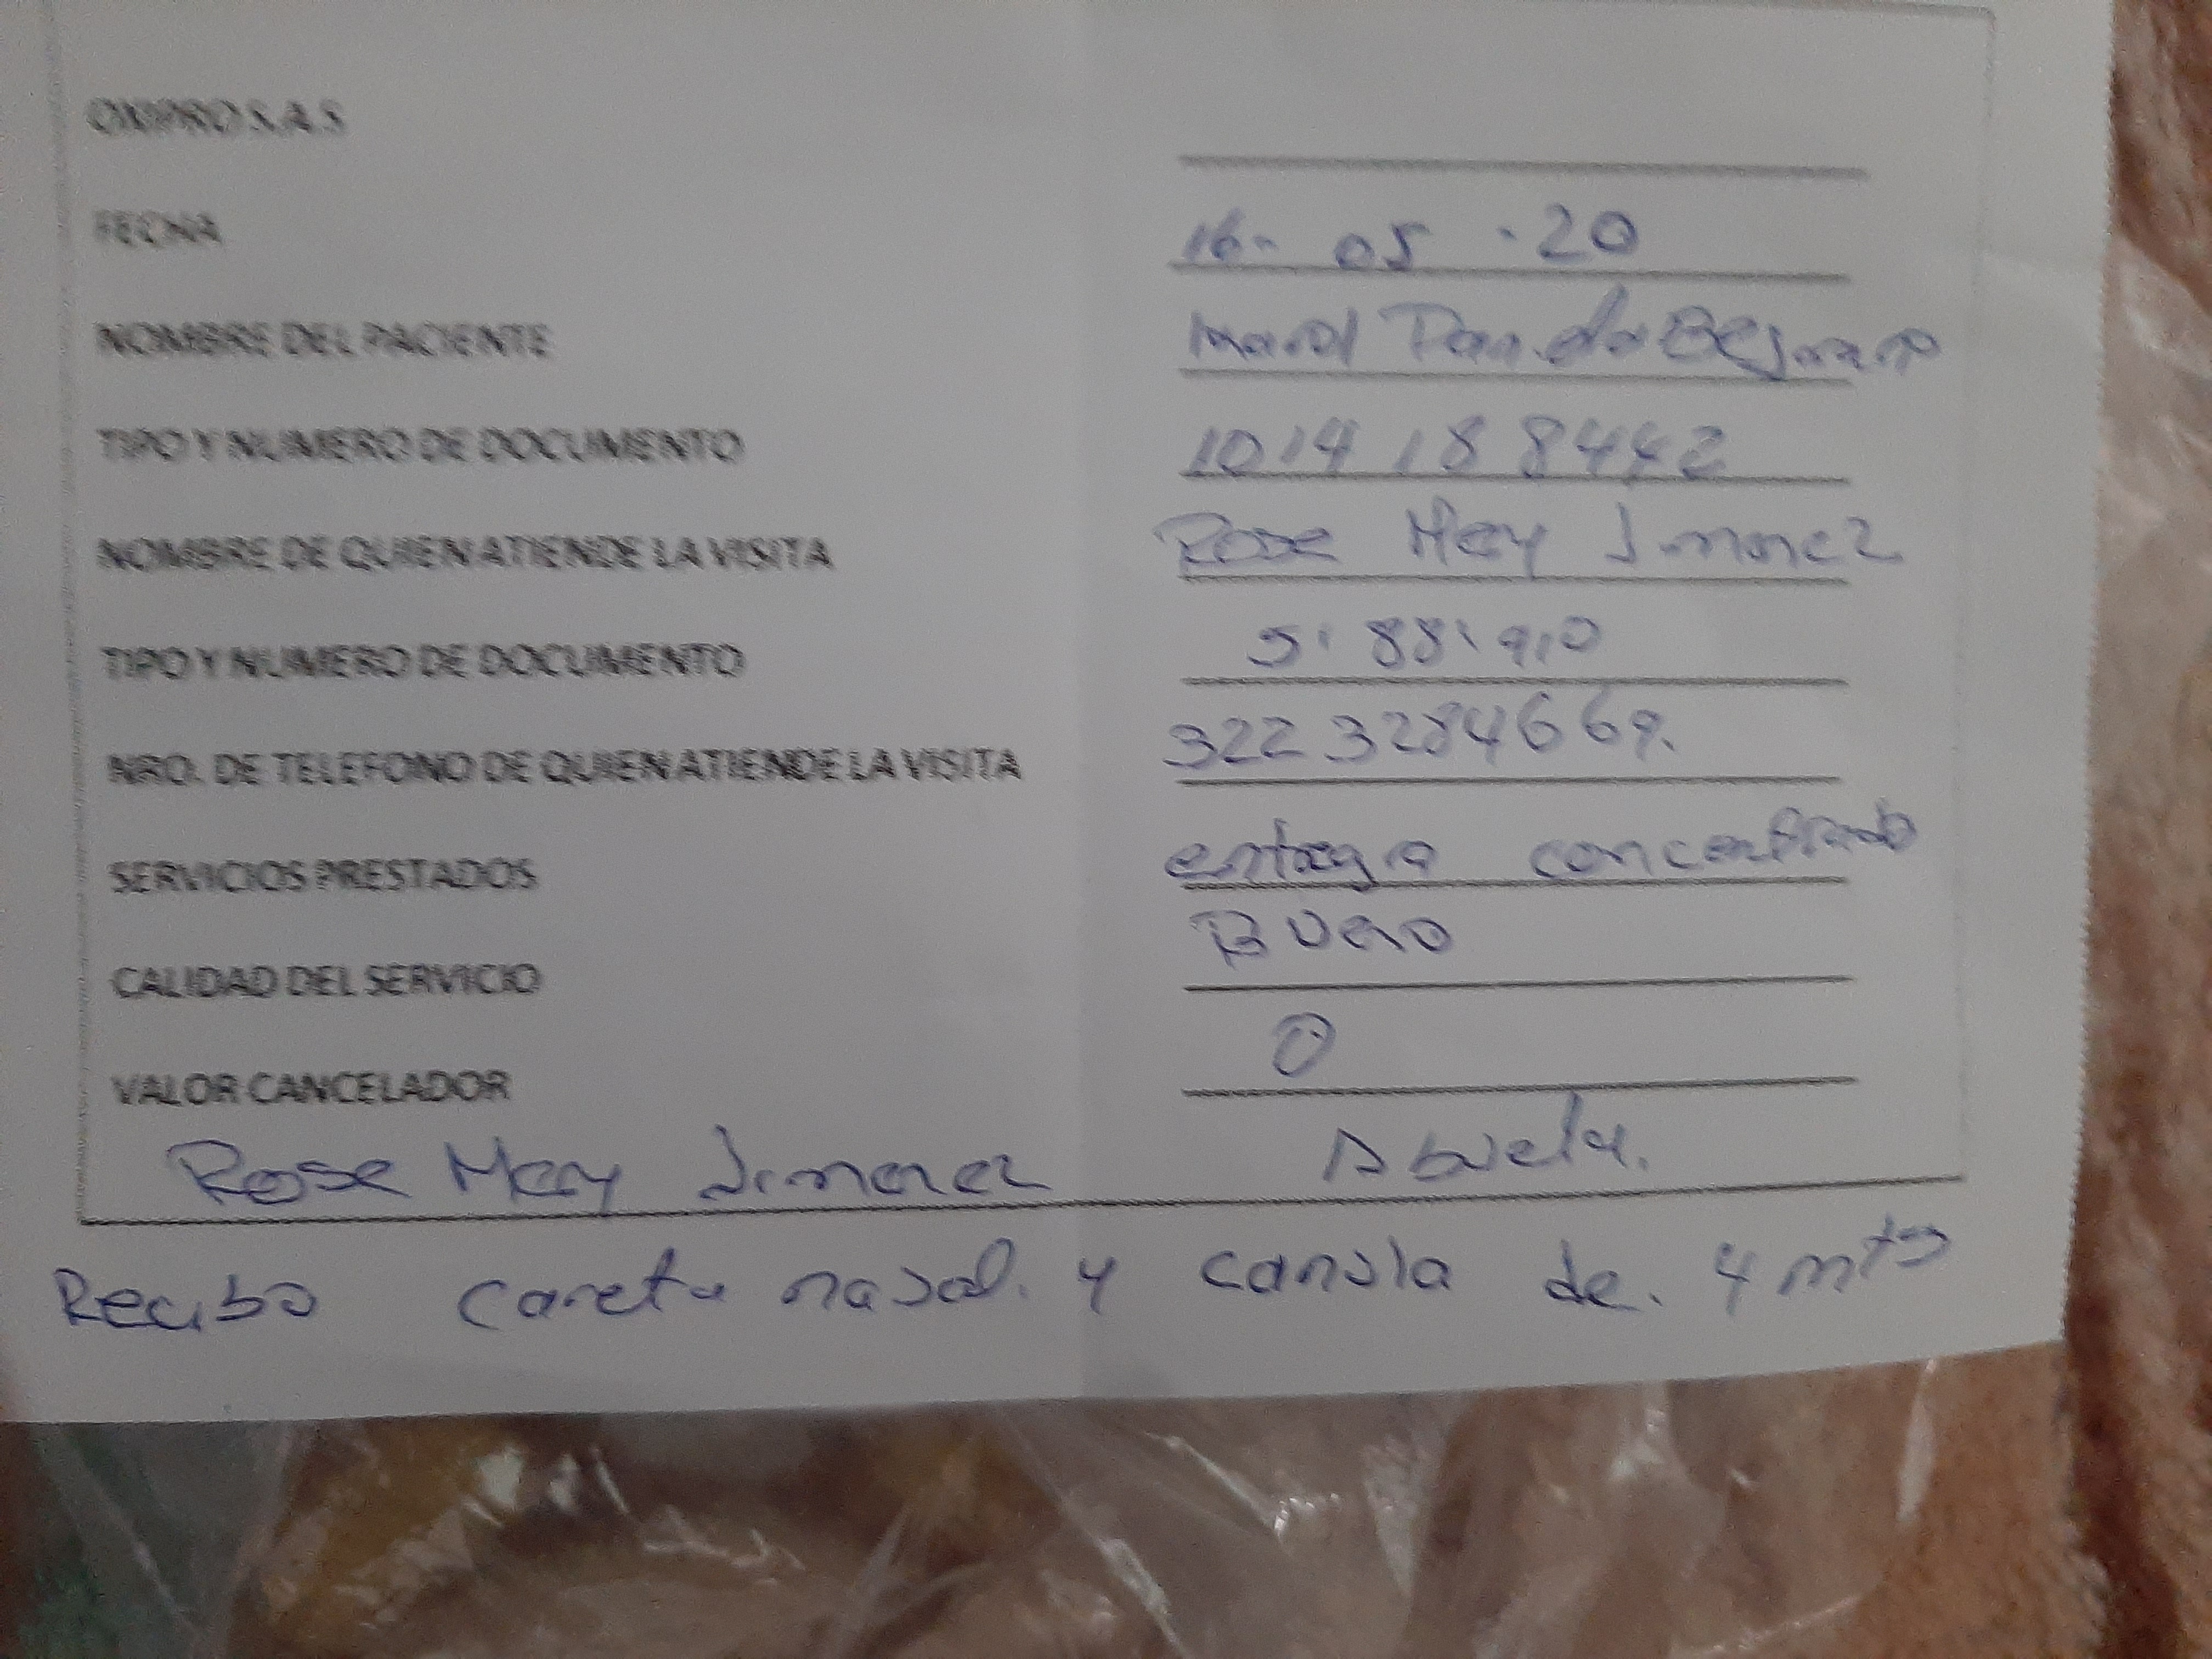 OXIPRO S.A.S
FECHA 16- 05 -20
NOMBRE DEL PACIENTE
TIPO Y NUMERO DE DOCUMENTO 1014188442
NOMBRE DE QUIEN ATIENDE LA VISITA Rose Mery Jimenez
TIPO Y NUMERO DE DOCUMENTO
NRO. DE TELEFONO DE QUIEN ATIENDE LA VISITA 322 3284669.
SERVICIOS PRESTADOS entrega
CALIDAD DEL SERVICIO Bueno
VALOR CANCELADOR 0
Rose Mery Jimenez Abuela.
Recibo careta nasal. y canula de. 4 mts